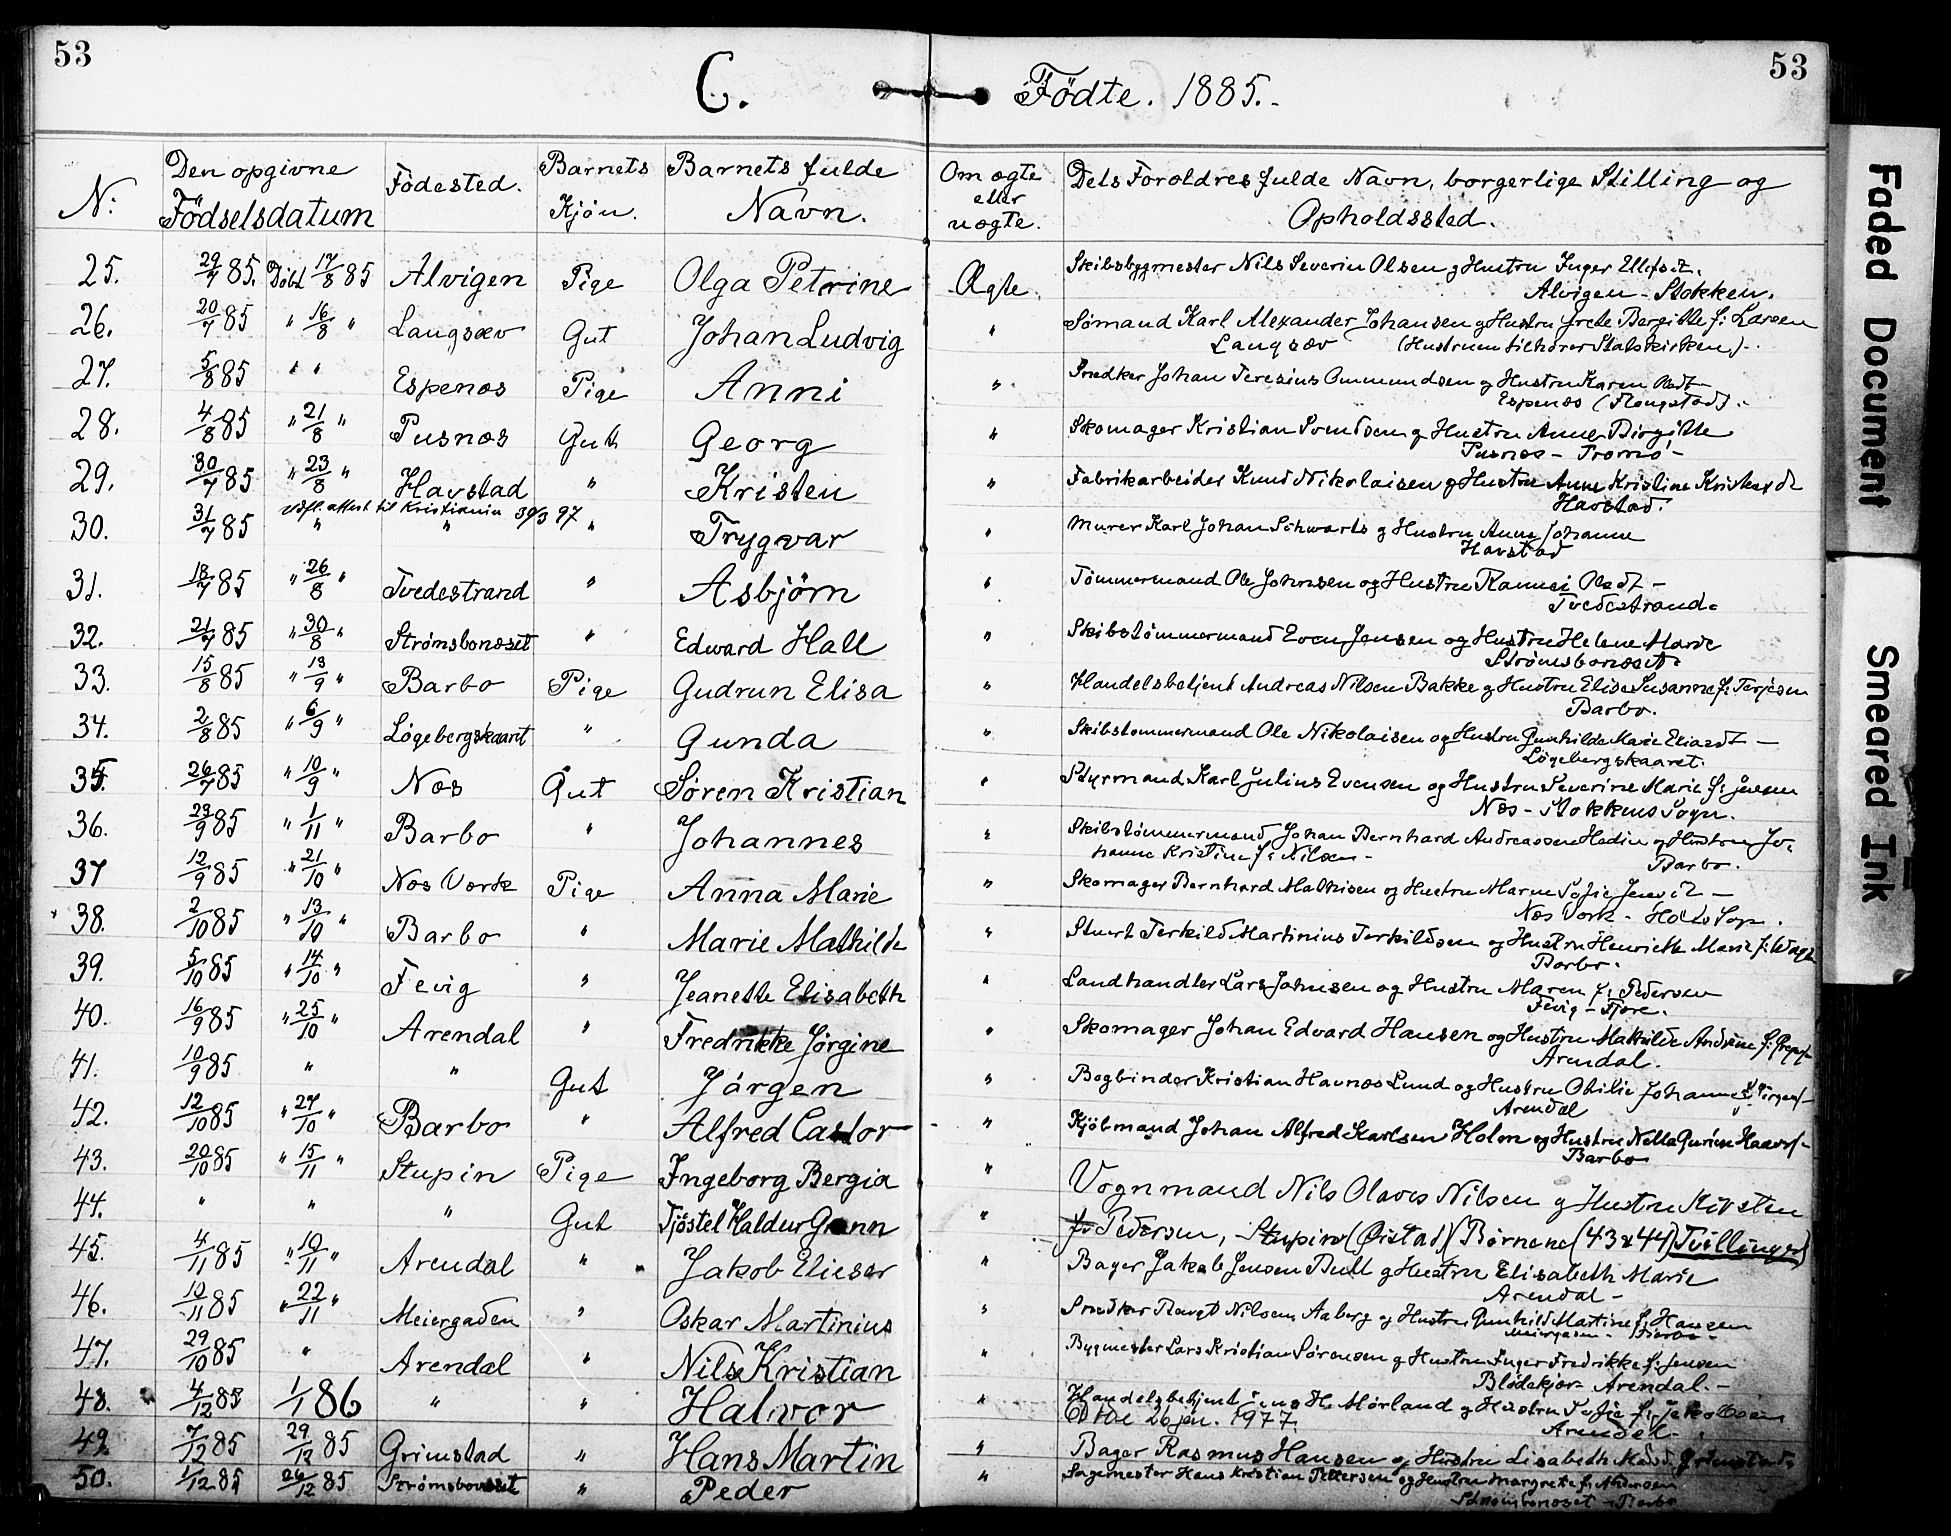 53
53
C.
Födte. 1885.-
N:
Den opgivne Födselsdatum
Födested.
Barnets Kjön.
Barnets fulde Navn.
Om ægte eller uægte.
Dets Forældres fulde Navn, borgerlige Stilling og Opholdssted.
25. 29/7 85. Döbt 17/8 85 Alvigen Pige Olga Petrine Ægte. Skibsbygmester Nils Severin Olsen og Hustru Inger
Alvigen - Stokken.
26. 20/7 85 " 16/8 " Langsæv Gut Johan Ludvig " Sømand Karl Alexander Johansen og Hustru Grete Bergitte f: Larsen
Langsæv (Hustruen tilhører Statskirken).
27. 5/8 85 " " Espenæs Pige Anni " Snedker Johan Teresius Ommundsen og Hustru Karen
Espenæs (Flangstad).
28. 4/8 85 " 21/8 " Pusnæs Gut Georg " Skomager Kristian Svendsen og Hustru Anne Birgitte
Pusnæs - Tromö -
29. 30/7 85 " 23/8 " Havstad " Kristen " Fabrikarbeider Knud Nikolaisen og Hustru Anne Kristine
Havstad.
attest til Kristiania 30/3 97
30. 31/7 85 " " " Trygvar " Murer Karl Johan Schwarts og Hustru Anne Johanne
Havstad
31. 18/7 85 " 26/8 " Tvedestrand " Asbjörn " Tömmermand Ole Johnsen og Hustru
Tvedestrand.
32. 21/7 85 " 30/8 " Strømsbonæset " Edward Hall " Skibstömmermand Even Jensen og Hustru Helene Marie
Strømsbonæset.
33. 15/8 85 " 13/9 " Barbo Pige Gudrun Elisa " Handelsbetjent Andreas Nilsen Bakke og Hustru Elise Susanne f: Terjesen
Barbo.
34. 2/8 85 " 6/9 " Løgebergskaaret " Gunda " Skibstömmermand Ole Nikolaisen og Hustru Gunhilde Marie
Løgebergskaaret.
35. 26/7 85 " 10/9 " Næs Gut Søren Kristian " Styrmand Karl Julius Evensen og Hustru Severine Marie f: Jensen
Næs - Stokkens Sogn.
36. 23/9 85 " 1/11 " Barbo " Johannes " Skibstömmermand Johan Bernhard Andreassen Hedin og Hustru Jo-
hanne Kristine f: Nilsen - Barbo.
37 12/9 85 " 21/10 " Næs Værk Pige Anna Marie " Skomager Bernhard Mathisen og Hustru Maren Sofie
Næs Værk - Holts Sogn.
38. 2/10 85 " 13/10 " Barbo " Marie Mathilde " Stuert Terkild Martinius Terkildsen og Hustru Henriette Marie f:
Barbo.
39. 5/10 85 " 14/10 " Fevig " Jeanette Elisabeth " Landhandler Lars Johnsen og Hustru Maren f: Pedersen
Fevig - Fjære.
40. 16/9 85 " 25/10 " Arendal " Fredrikke Jörgine " Skomager Johan Edvard Hansen og Hustru Mathilde Andrine f:
Arendal.
41. 10/9 85 " " Gut Jörgen " Bogbinder Kristian Havnæs Lund og Hustru Otilie Johanne f:
Arendal
42. 12/10 85 " 27/10 " Barbo " Alfred Castor " Kjöbmand Johan Alfred Karlsen Holm og Hustru
Barbo
43. 20/10 85 " 15/11 " Stupin Pige Ingeborg Bergia " Vognmand Nils Olaves Nilsen og Hustru Kirsten
44. " " " Gut Tjöstel Haldur Grann " f: Pedersen, Stupin (Øistad) (Børnene (43 & 44) Tvillinger)
45. 4/11 85 " 10/11 " Arendal " Jakob Elieser " Bager Jakob Jensen Bull og Hustru Elisabeth Marie
Arendal -
46. 10/11 85 " 22/11 " Meiergaden " Oskar Martinius " Snedker Nilsen Aaberg og Hustru Gunhild Martine f: Hansen
Meiergaden - Barbo -
47. 29/10 85 " Arendal " Nils Kristian " Bygmester Lars Kristian Sørensen og Hustru Inger Fredrikke f: Jensen
Blödekjær - Arendal. -
48. 4/12 85 1/1 86 " " Halvor " Handelsbetjent Mørland og Hustru Sofie f: Jakobsen
26 jan. 1977. Arendal -
49. 7/12 85 29/12 85 Grimstad " Hans Martin " Bager Rasmus Hansen og Hustru Lisabeth Grimstad.
50. 1/12 85 26/12 85 Strømsbonæset " Peder " Sagmester Hans Kristian Pettersen og Hustru Margrete f: Andersen
Strømsbonæset - Barbo
Faded Document
Smeared Ink